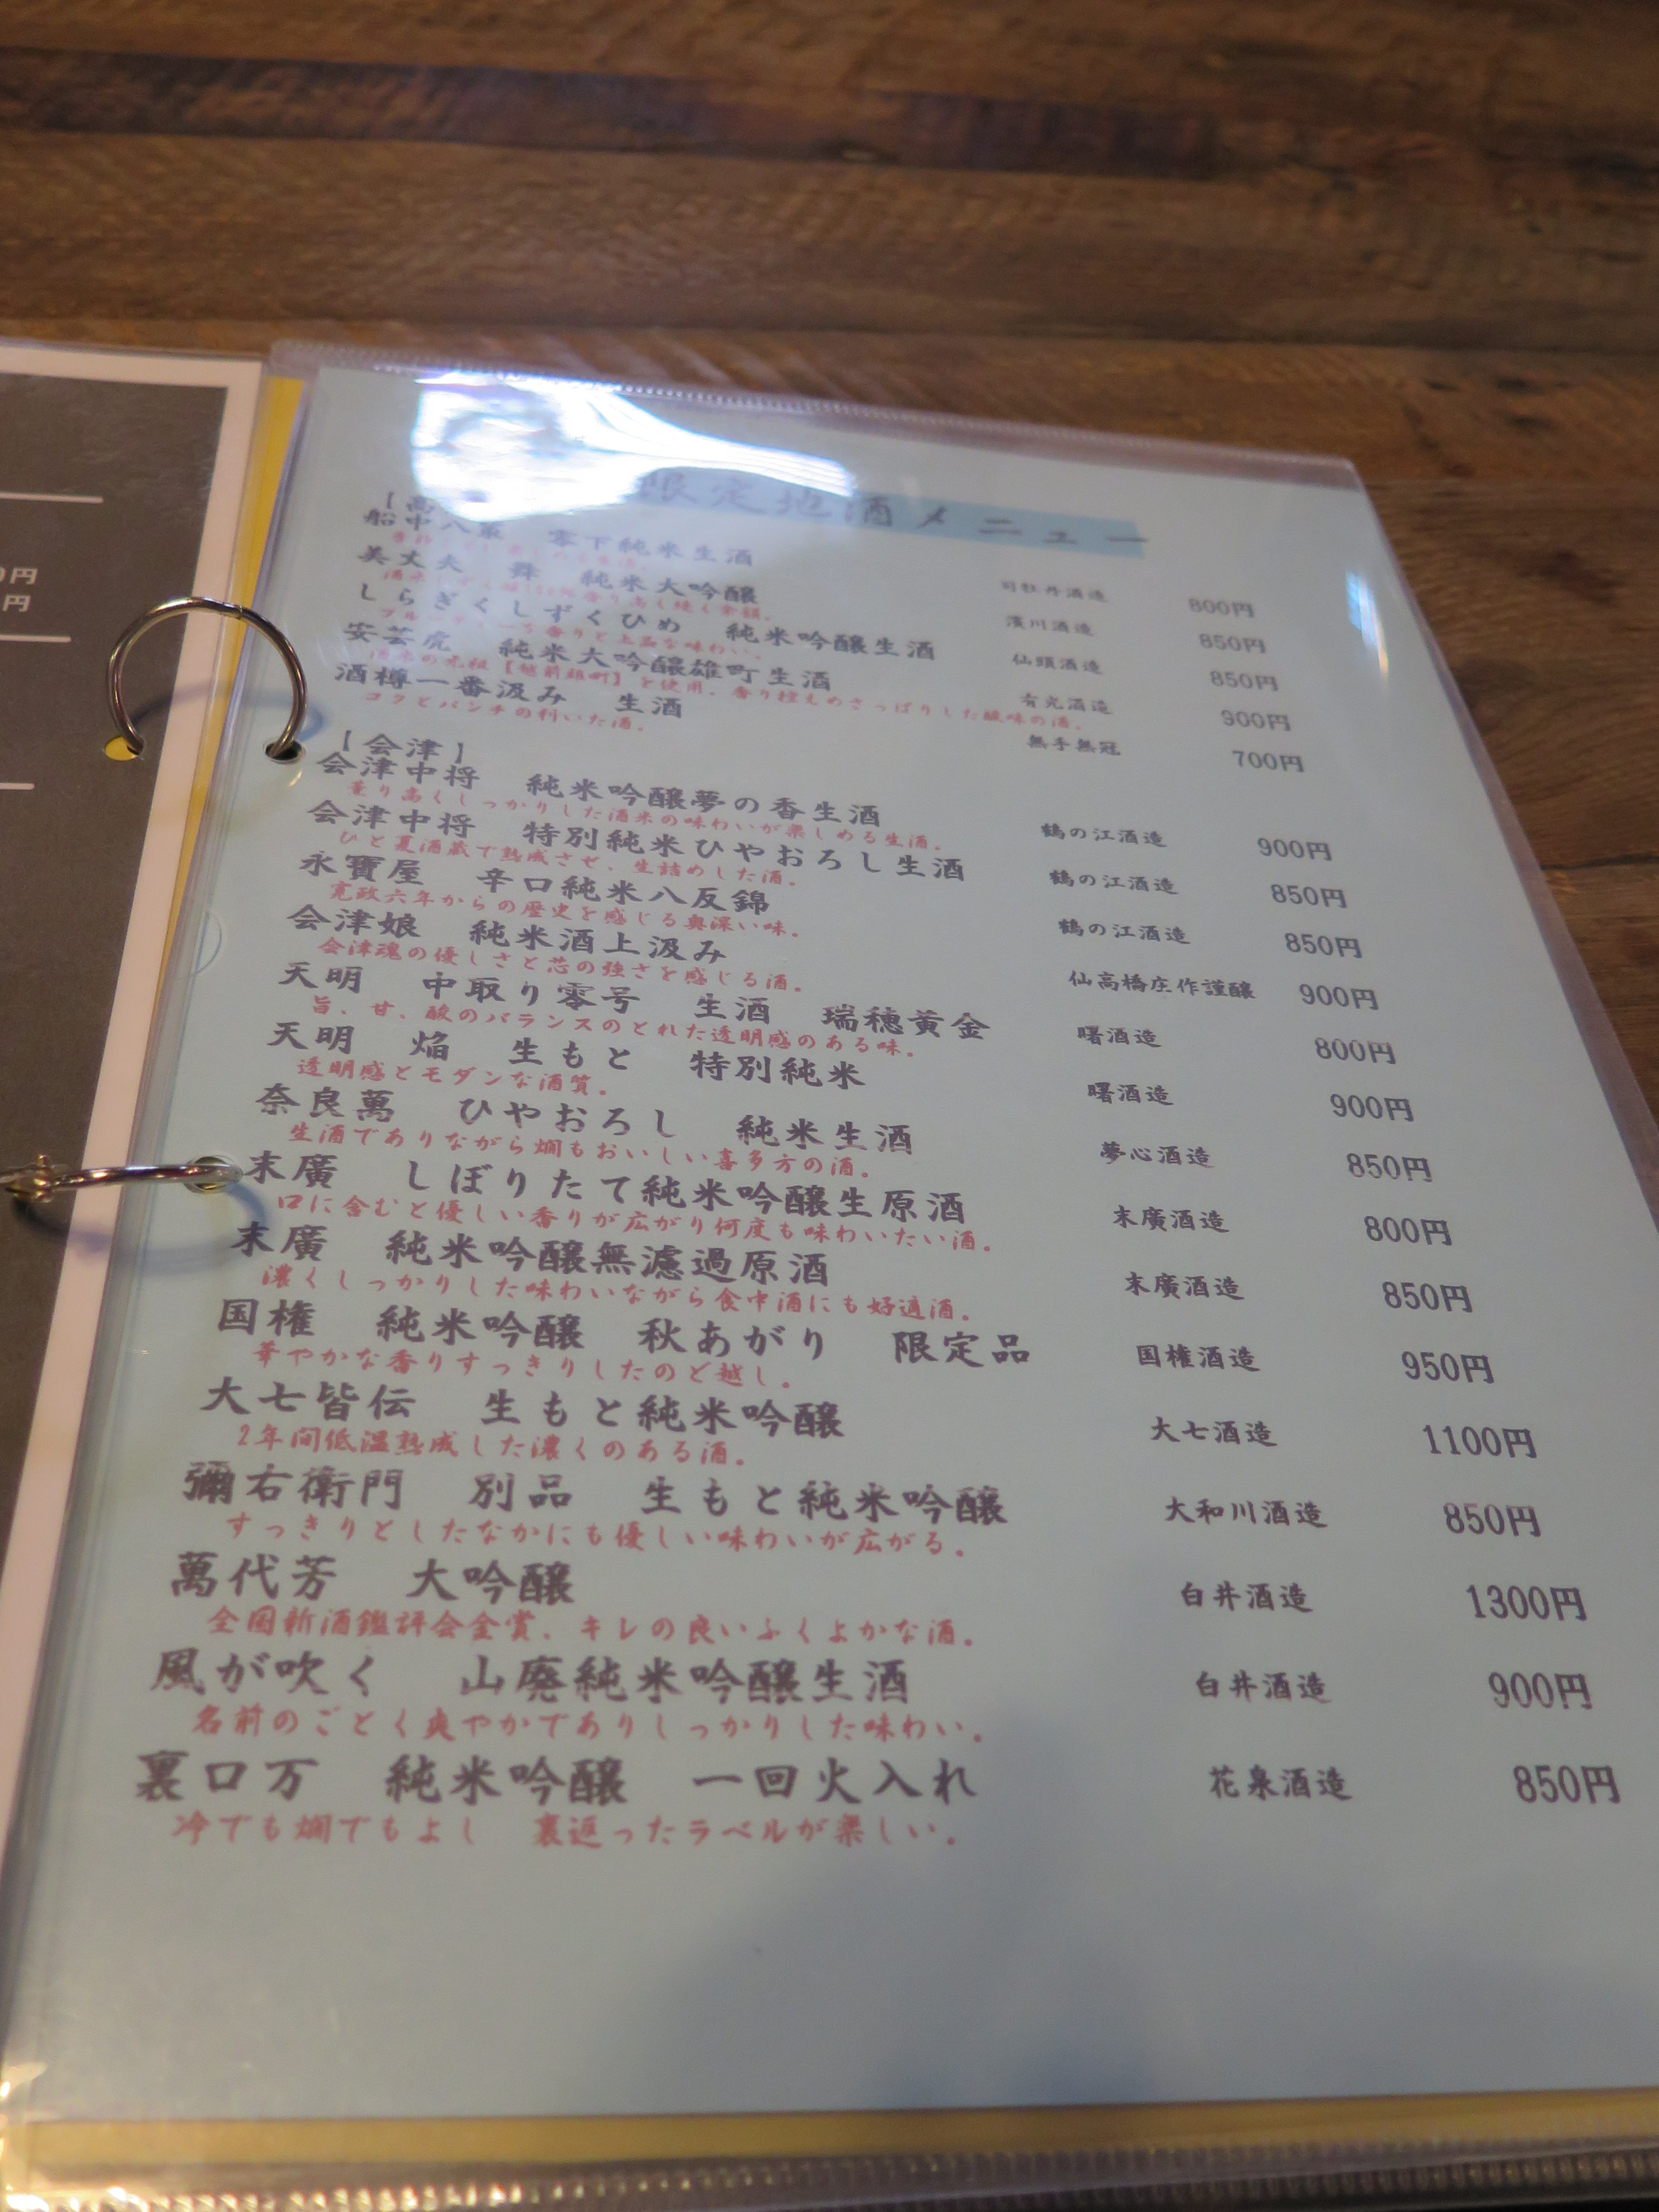 0円
円
限定地酒メニュー
【高
船中八策　零下純米生酒　司牡丹酒造　800円
美丈夫　舞　純米大吟醸　濱川酒造　850円
しらぎくしずくひめ　純米吟醸生酒　仙頭酒造　850円
フルーティーな香りと上品な味わい。
安芸虎　純米大吟醸雄町生酒　有光酒造　900円
酒米の元祖【越前雄町】を使用。香り控えめさっぱりした酸味の酒。
酒樽一番汲み　生酒　無手無冠　700円
コクとパンチの利いた酒。
【会津】
会津中将　純米吟醸夢の香生酒　鶴の江酒造　900円
薫り高くしっかりした酒米の味わいが楽しめる生酒。
会津中将　特別純米ひやおろし生酒　鶴の江酒造　850円
ひと夏酒蔵で熟成させ、生詰めした酒。
永寶屋　辛口純米八反錦　鶴の江酒造　850円
寛政六年からの歴史を感じる奥深い味。
会津娘　純米酒上汲み　仙高橋庄作謹醸　900円
会津魂の優しさと芯の強さを感じる酒。
天明　中取り零号　生酒　瑞穂黄金　曙酒造　800円
旨、甘、酸のバランスのとれた透明感のある味。
天明　焔　生もと　特別純米　曙酒造　900円
透明感とモダンな酒質。
奈良萬　ひやおろし　純米生酒　夢心酒造　850円
生酒でありながら燗もおいしい喜多方の酒。
末廣　しぼりたて純米吟醸生原酒　末廣酒造　800円
口に含むと優しい香りが広がり何度も味わいたい酒。
末廣　純米吟醸無濾過原酒　末廣酒造　850円
濃くしっかりした味わいながら食中酒にも好適酒。
国権　純米吟醸　秋あがり　限定品　国権酒造　950円
華やかな香りすっきりしたのど越し。
大七皆伝　生もと純米吟醸　大七酒造　1100円
2年間低温熟成した濃くのある酒。
彌右衛門　別品　生もと純米吟醸　大和川酒造　850円
すっきりとしたなかにも優しい味わいが広がる。
萬代芳　大吟醸　白井酒造　1300円
全国新酒鑑評会金賞、キレの良いふくよかな酒。
風が吹く　山廃純米吟醸生酒　白井酒造　900円
名前のごとく爽やかでありしっかりした味わい。
裏ロ万　純米吟醸　一回火入れ　花泉酒造　850円
冷でも燗でもよし　裏返ったラベルが楽しい。